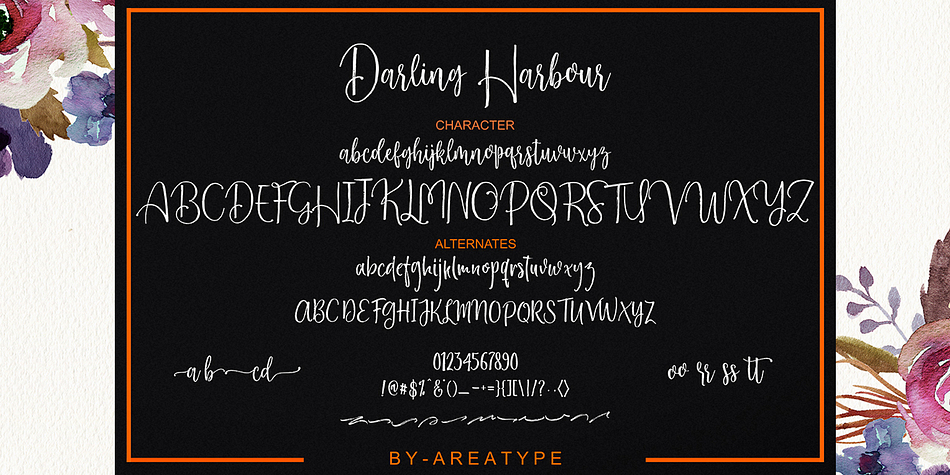 Darling Harbour
CHARACTER
abcdefghijklmnopqrstuvwxyz
ABCDEFGHIJKLMNOPQRSTUVWXYZ
ALTERNATES
abcdefghijklmnopqrstuvwxyz
ABCDEFGHIJKLMNOPQRSTUVWXYZ
a b cd
01234567890
!@#$%^&*()_-+={}[]|\|/?..<>
oo rr ss tt
BY-AREATYPE